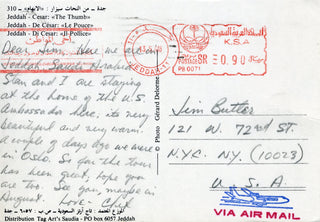 310 – جدة – من النحات سيزار : «الابهام»
Jeddah - Cesar: «The Thumb»
Jeddah - De César: «Le Pouce»
Jeddah - Dj Cesar: «Il Pollice»
Dear Jim, Here we are in
Jeddah Saudi Arabia
Stan and I are staying
at the home of the U.S.
Ambassador here, its very
beautiful and very warm.
A couple of days ago we were
in Oslo. So far the tour
has been great, hope you
are too. See you maybe in
August Love, Chet
K.S.A
SR 0.90
PB 0071
JEDDAH
© Photo Gérard Delorme
Jim Butler
121 W. 72nd ST.
N.Y.C. N.Y. (10023)
U.S.A
VIA AIR MAIL
Distribution Tag Art's Saudia - PO box 6057 Jeddah